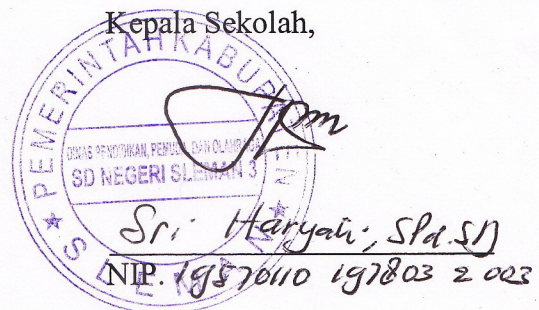 Kepala Sekolah,
PEMERINTAH KABUPATEN
DINAS PENDIDIKAN, PEMUDA, DAN OLAHRAGA
SD NEGERI SLEMAN 3
★ SLEMAN ★
Sri Haryati, SPd.SD
NIP. 19570110 197803 2 003